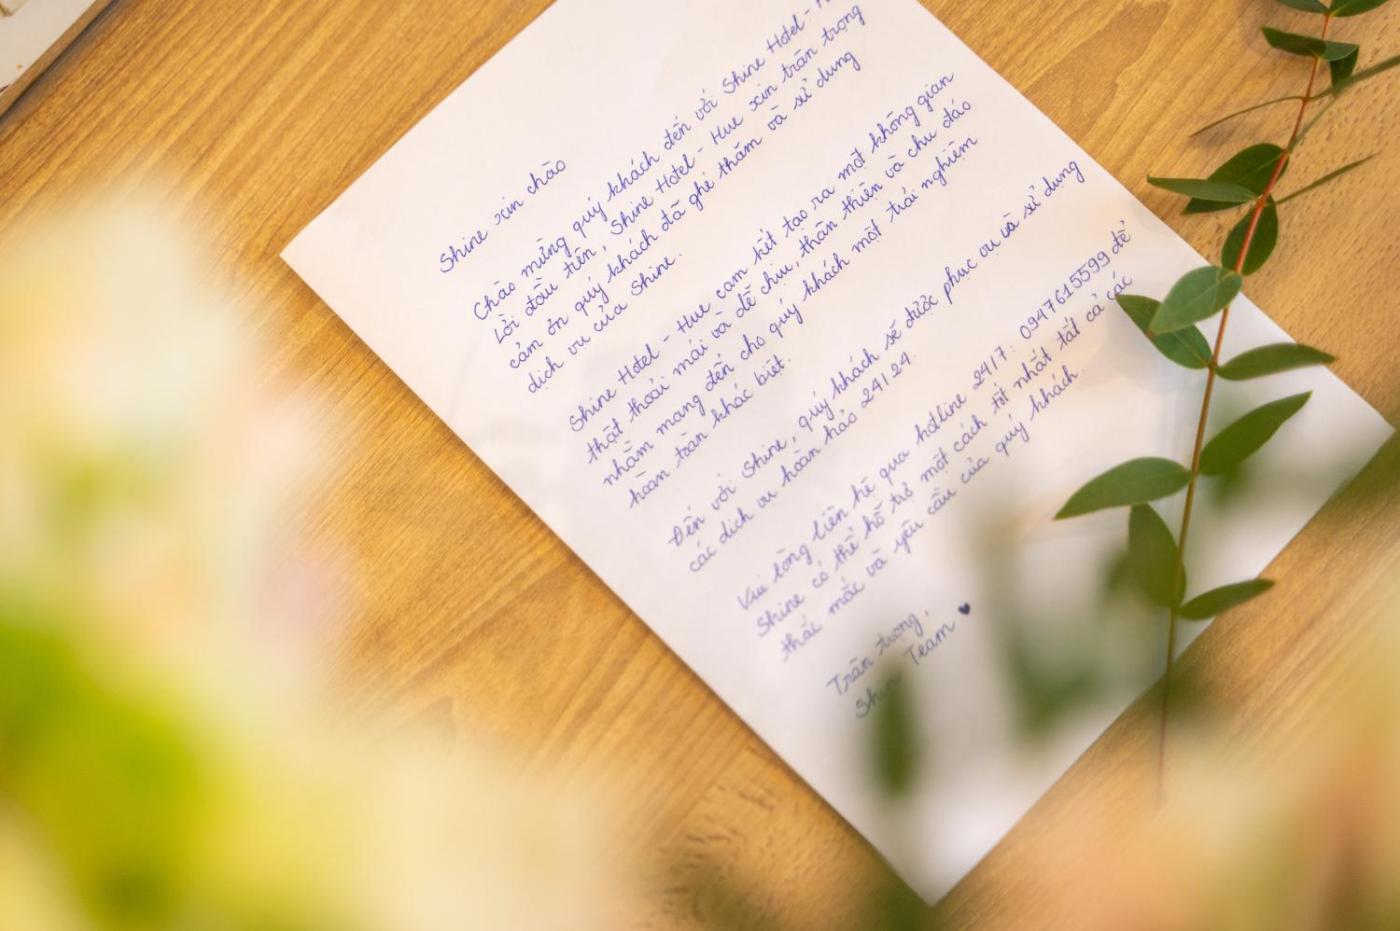 Shine xin chào
Chào mừng quý khách đến với Shine Hotel -
Lời đầu tiên, Shine Hotel - Hue xin trân trọng
cảm ơn quý khách đã ghé thăm và sử dụng
dịch vụ của Shine.
Shine Hotel - Hue cam kết tạo ra một không gian
thật thoải mái và dễ chịu, thân thiện và chu đáo
nhằm mang đến cho quý khách một trải nghiệm
hoàn toàn khác biệt.
Đến với Shine, quý khách sẽ được phục vụ và sử dụng
các dịch vụ hoàn hảo 24/24.
Vui lòng liên hệ qua hotline 24/7: 0947615599 để
Shine có thể hỗ trợ một cách tốt nhất tất cả các
thắc mắc và yêu cầu của quý khách.
Trân trọng,
Shine Team ♥